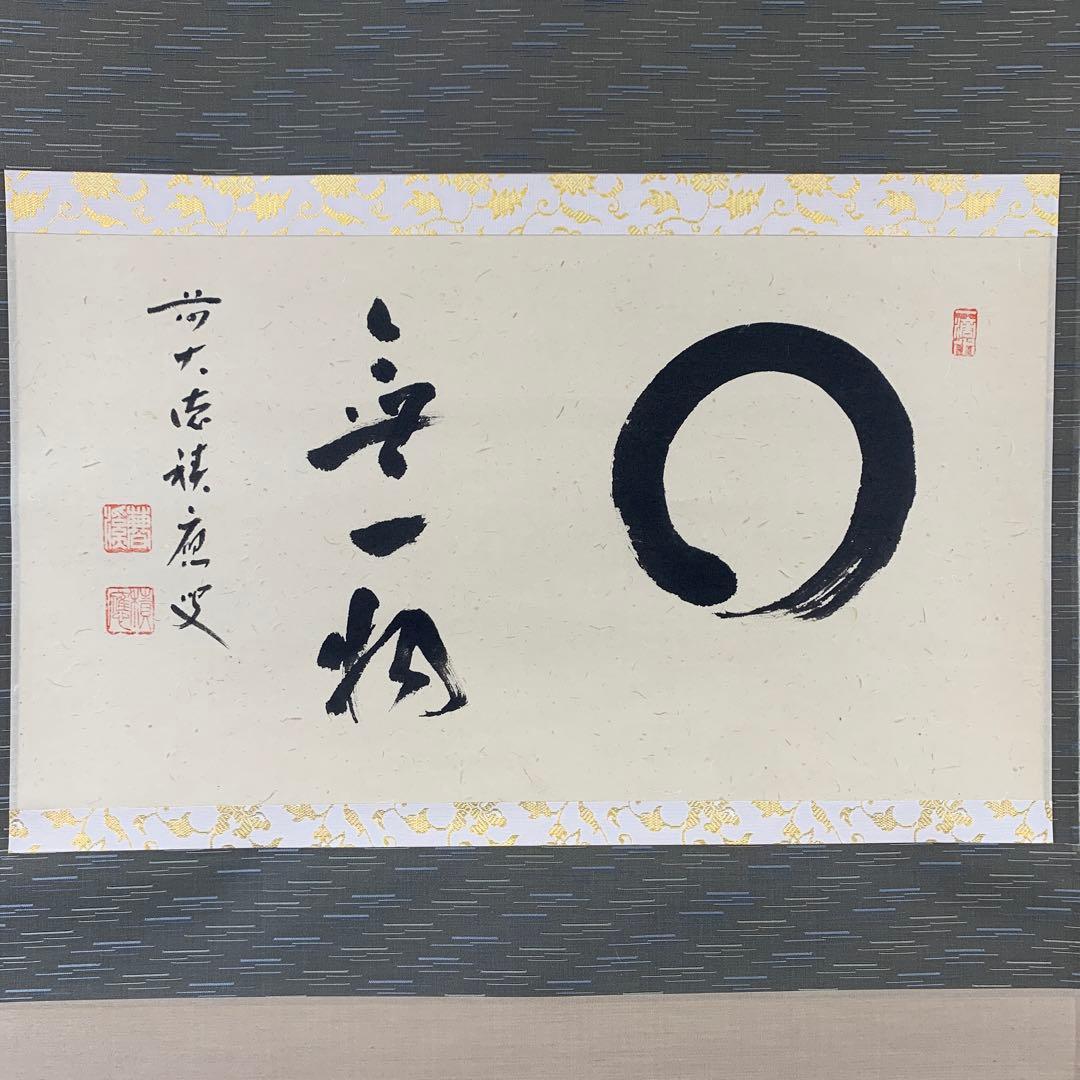 無一物
前大徳積應叟
積應